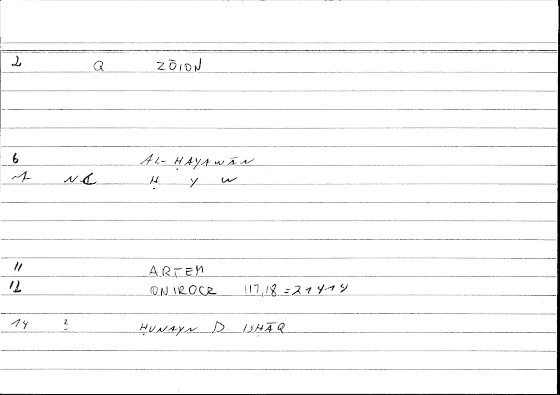 2 Q ZŌION
6 AL-ḤAYAWĀN
7 NC Ḥ Y W
11 ARTEM
12 ONIROCR 117,18 =
14 2 ḤUNAYN B ISḤĀQ